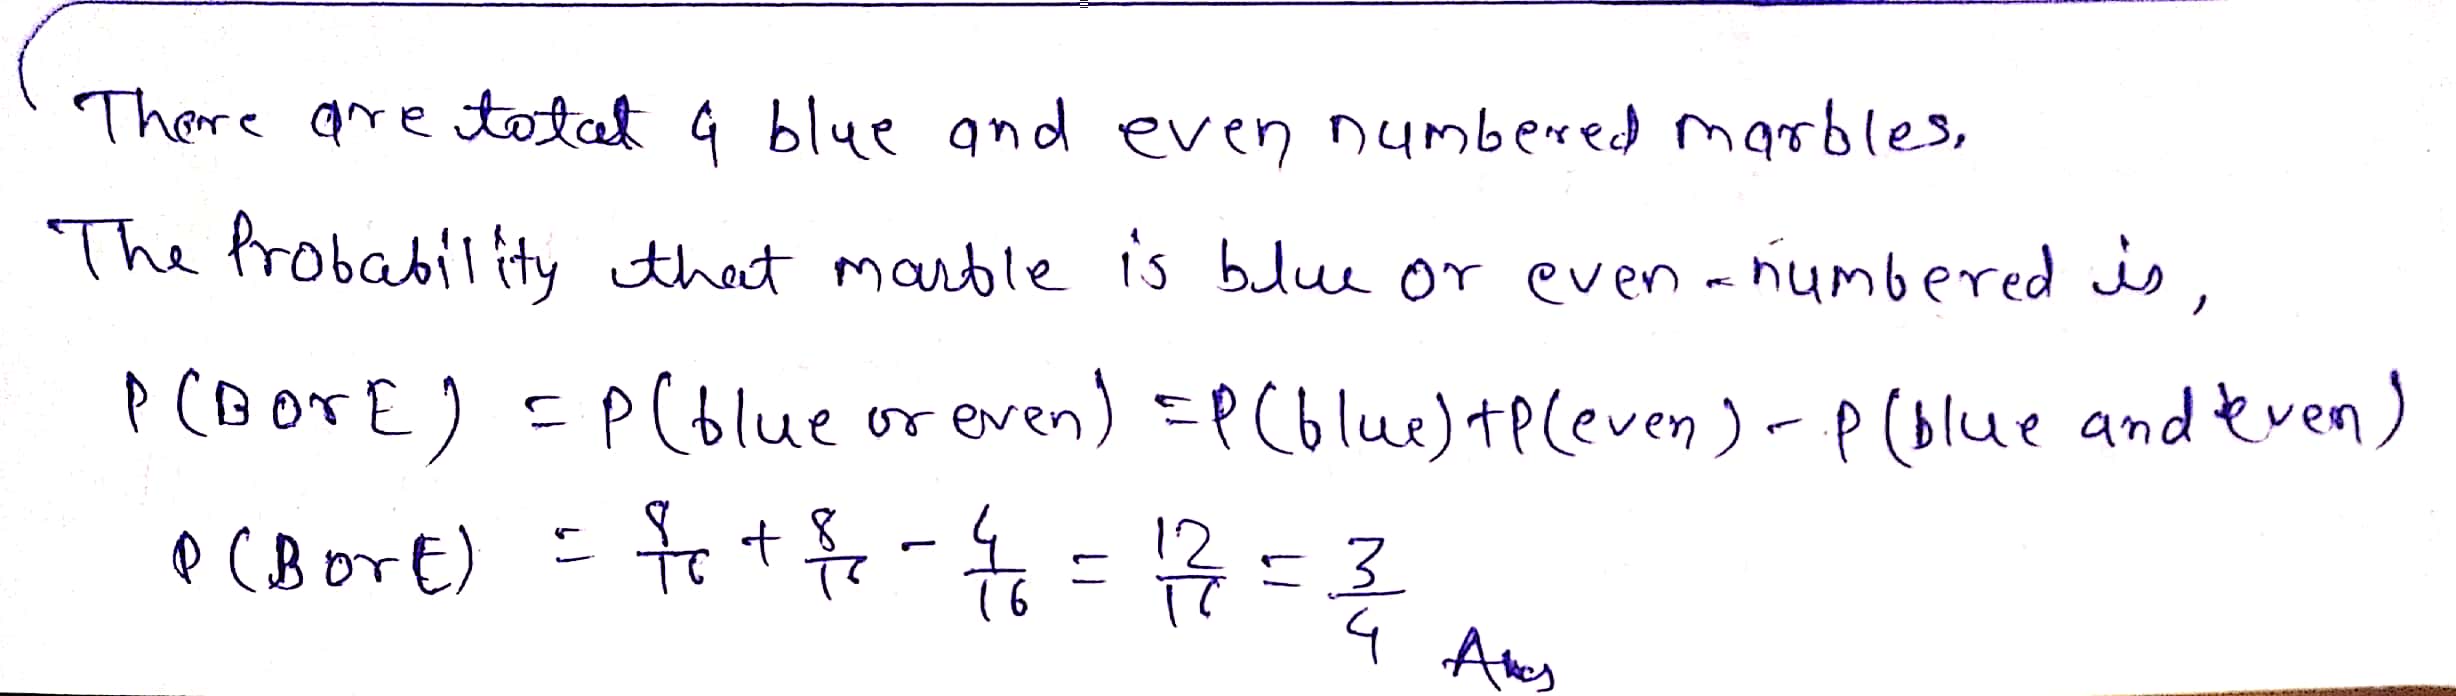 There are total 4 blue and even numbered marbles.
The Probability that marble is blue or even-numbered is,
P(B or E) = P(blue or even) = P(blue) + P(even) - P(blue and even)
P(B or E) = 8/16 + 8/16 - 4/16 = 12/16 = 3/4 Ans